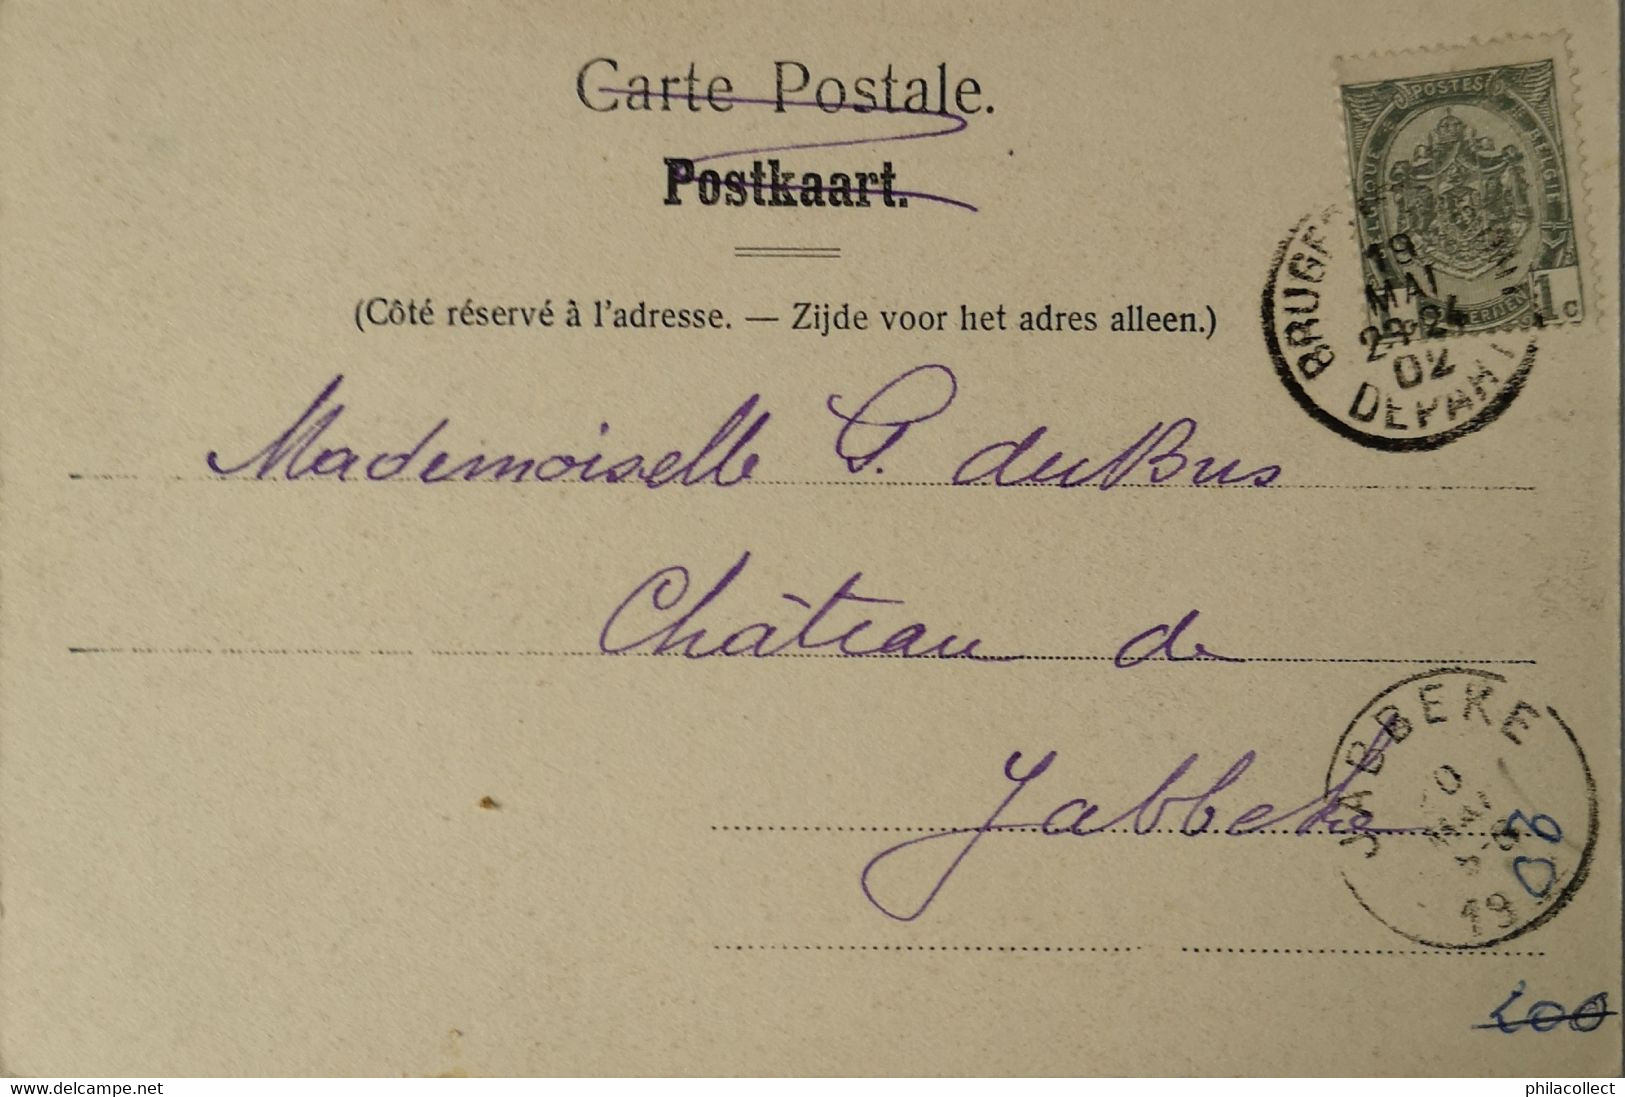 Carte Postale.
Postkaart.
(Côté réservé à l'adresse. — Zijde voor het adres alleen.)
POSTES
BELGIE
1c
BRUGES
19
MAI
02
DEPART
Mademoiselle G. du Bus
Château de
Jabbeke
JABBEKE
MAI
19
03
200
delcampe.net
philacollect